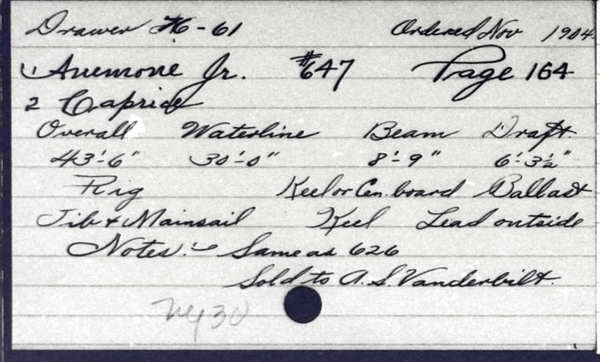 Drawer #6-61 Ordered Nov 1904
1 Anemone Jr. #647 Page 164
2 Caprice
Overall Waterline Beam Draft
43'-6" 30'-0" 8'-9" 6'-3½"
Rig Keel or Cen. board Ballast
Jib & Mainsail Keel Lead outside
Notes:- Same as 626
Sold to A.S. Vanderbilt.
NY30